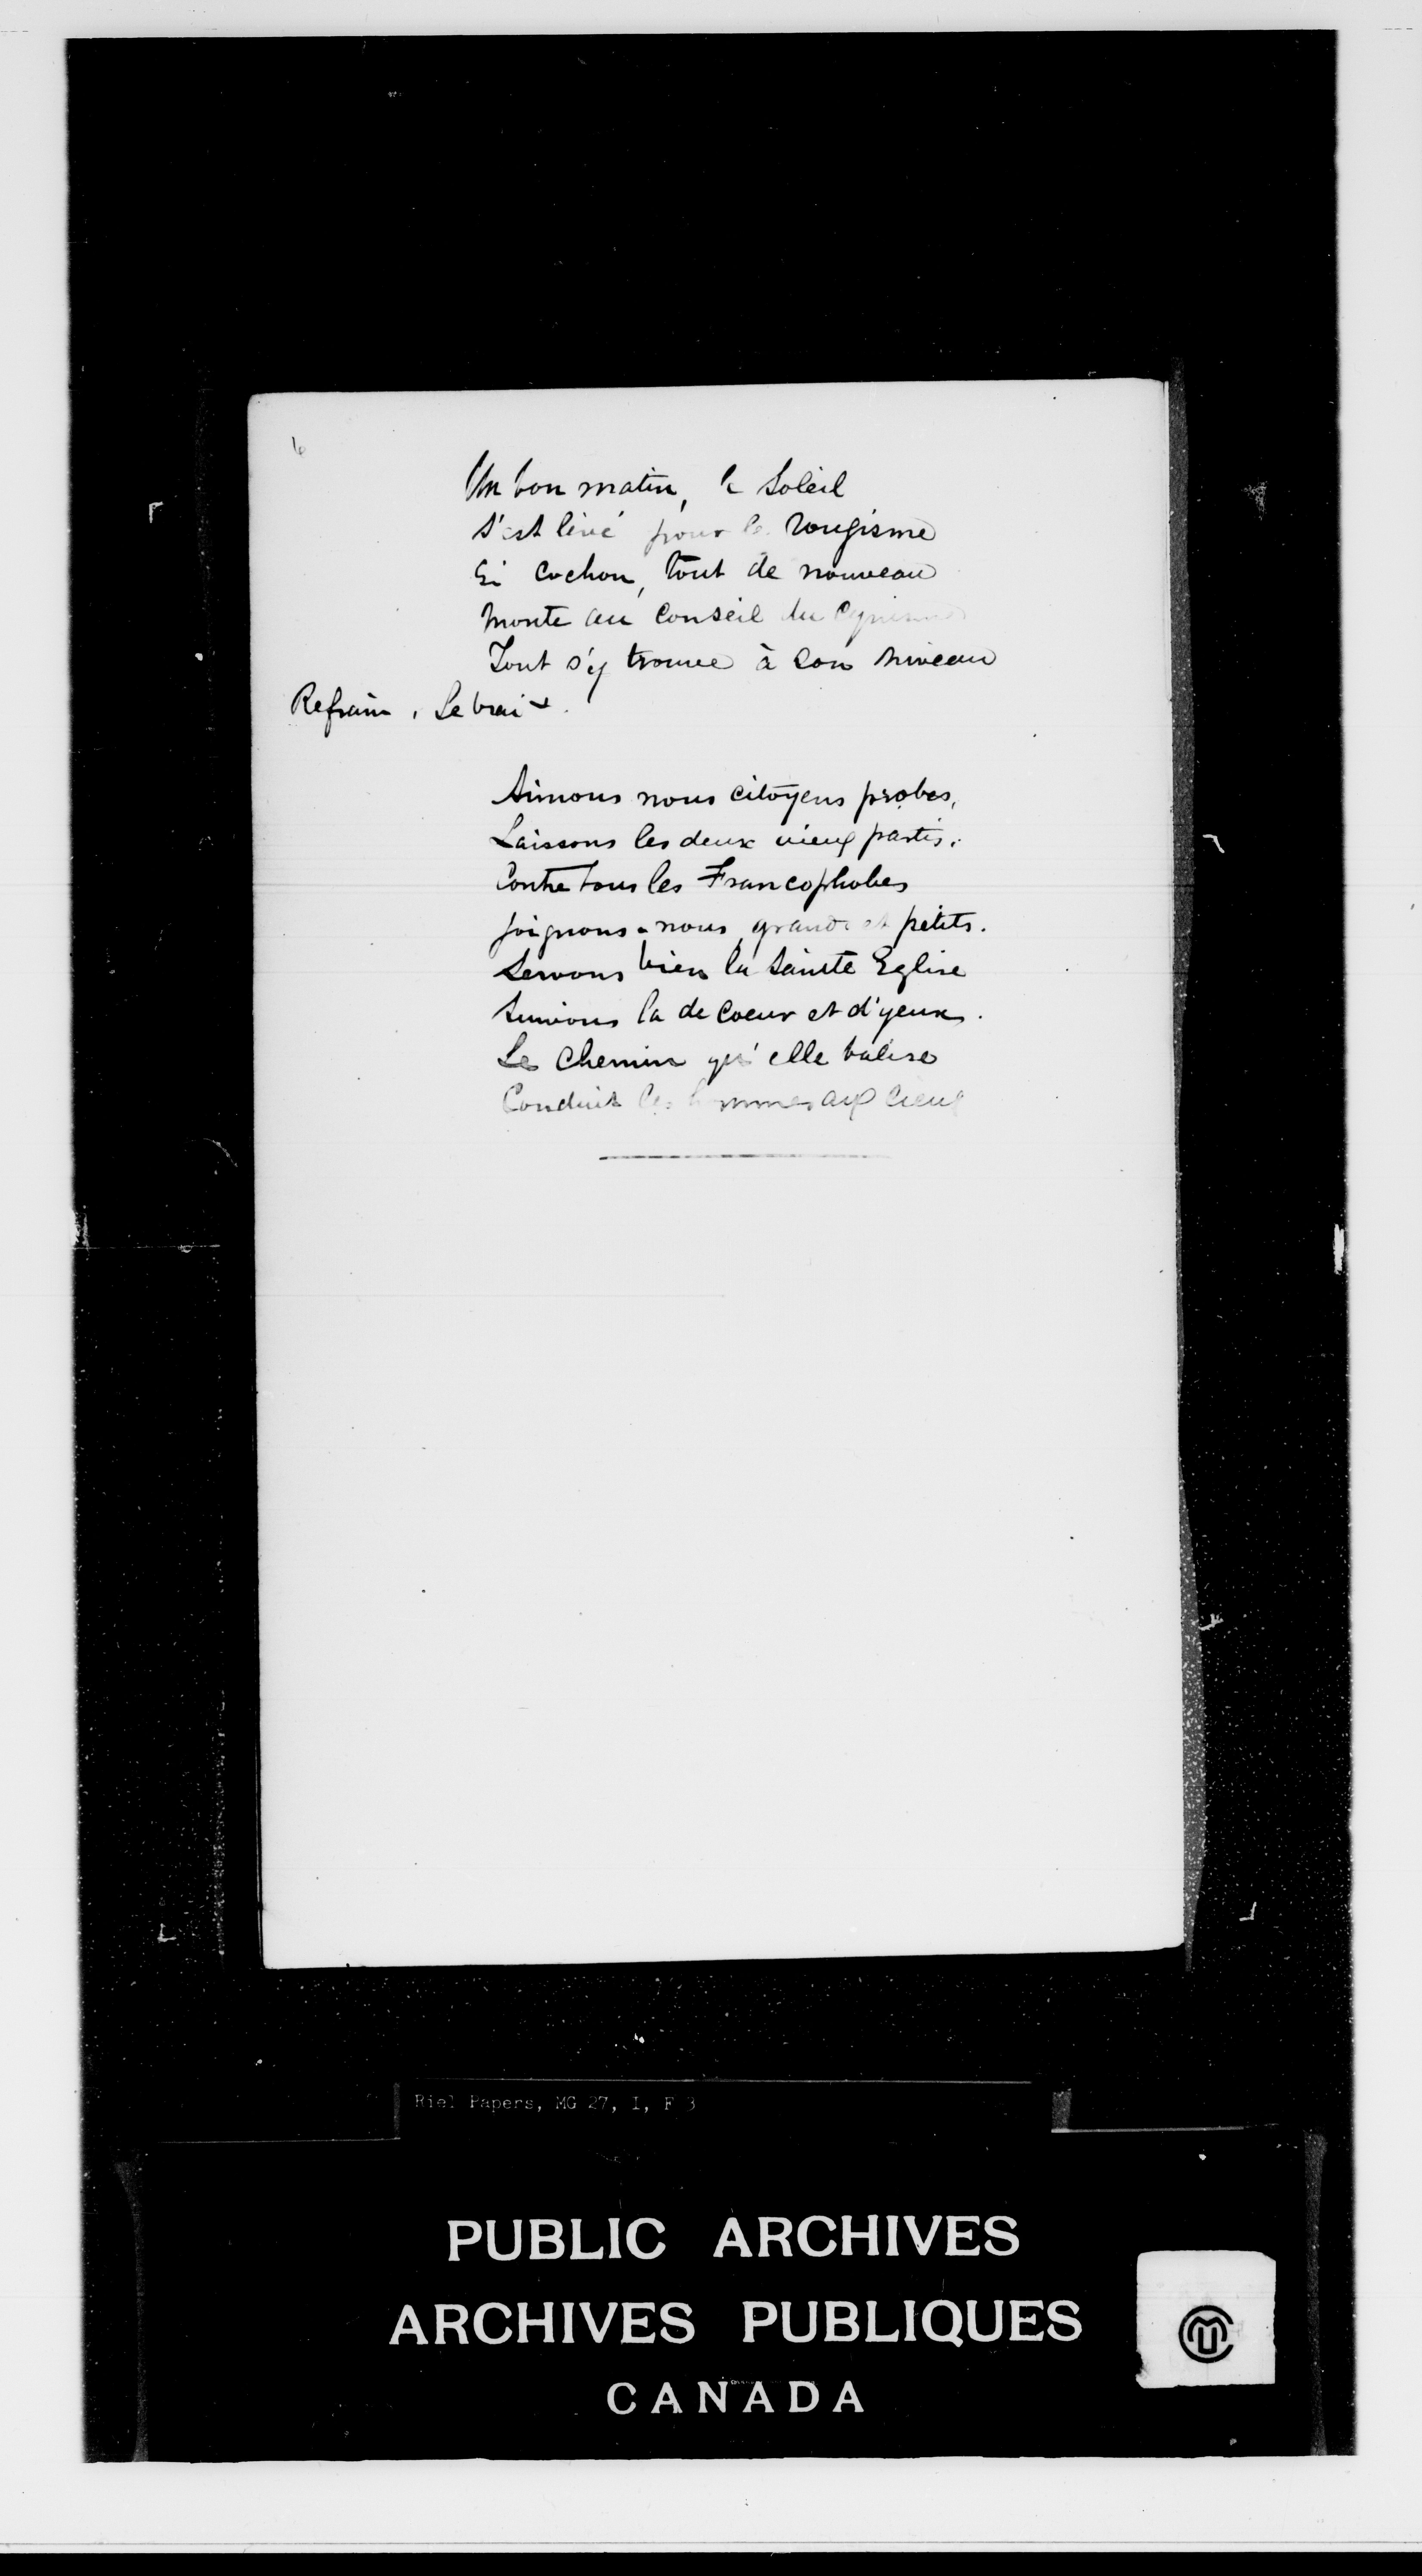 6
Un bon matin, le Soleil
S'est levé pour le rougisme
Si Cochon, tout de nouveau
Monte au Conseil du Cynisme
Tout s'y trouve à son niveau
Refrain, Le vrai
Aimons nous citoyens probes,
Laissons les deux vieux partis.
Contre tous les Francophobes
Joignons-nous, grands et petits.
Servons bien la Sainte Eglise
Suivons la de Coeur et d'yeux.
Le Chemin qu'elle balise
Conduit les hommes aux Cieux
Riel Papers, MG 27, I, F 3
PUBLIC ARCHIVES
ARCHIVES PUBLIQUES
CANADA